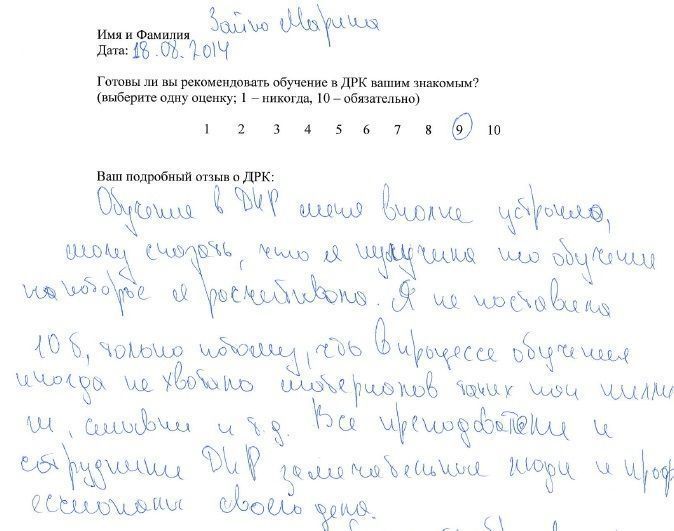 Имя и Фамилия Зайко Марина
Дата: 18.08.2014
Готовы ли вы рекомендовать обучение в ДРК вашим знакомым?
(выберите одну оценку; 1 – никогда, 10 – обязательно)
1 2 3 4 5 6 7 8 9 10
Ваш подробный отзыв о ДРК:
Обучение в ДКР меня вполне устроило,
могу сказать, что я получила то обучение
на которое я рассчитывала. Я не поставила
10 б, только потому, что в процессе обучения
иногда не хватало материалов таких как
и т.д. Все преподаватели и
сотрудники ДКР замечательные люди и проф
ессионалы своего дела.